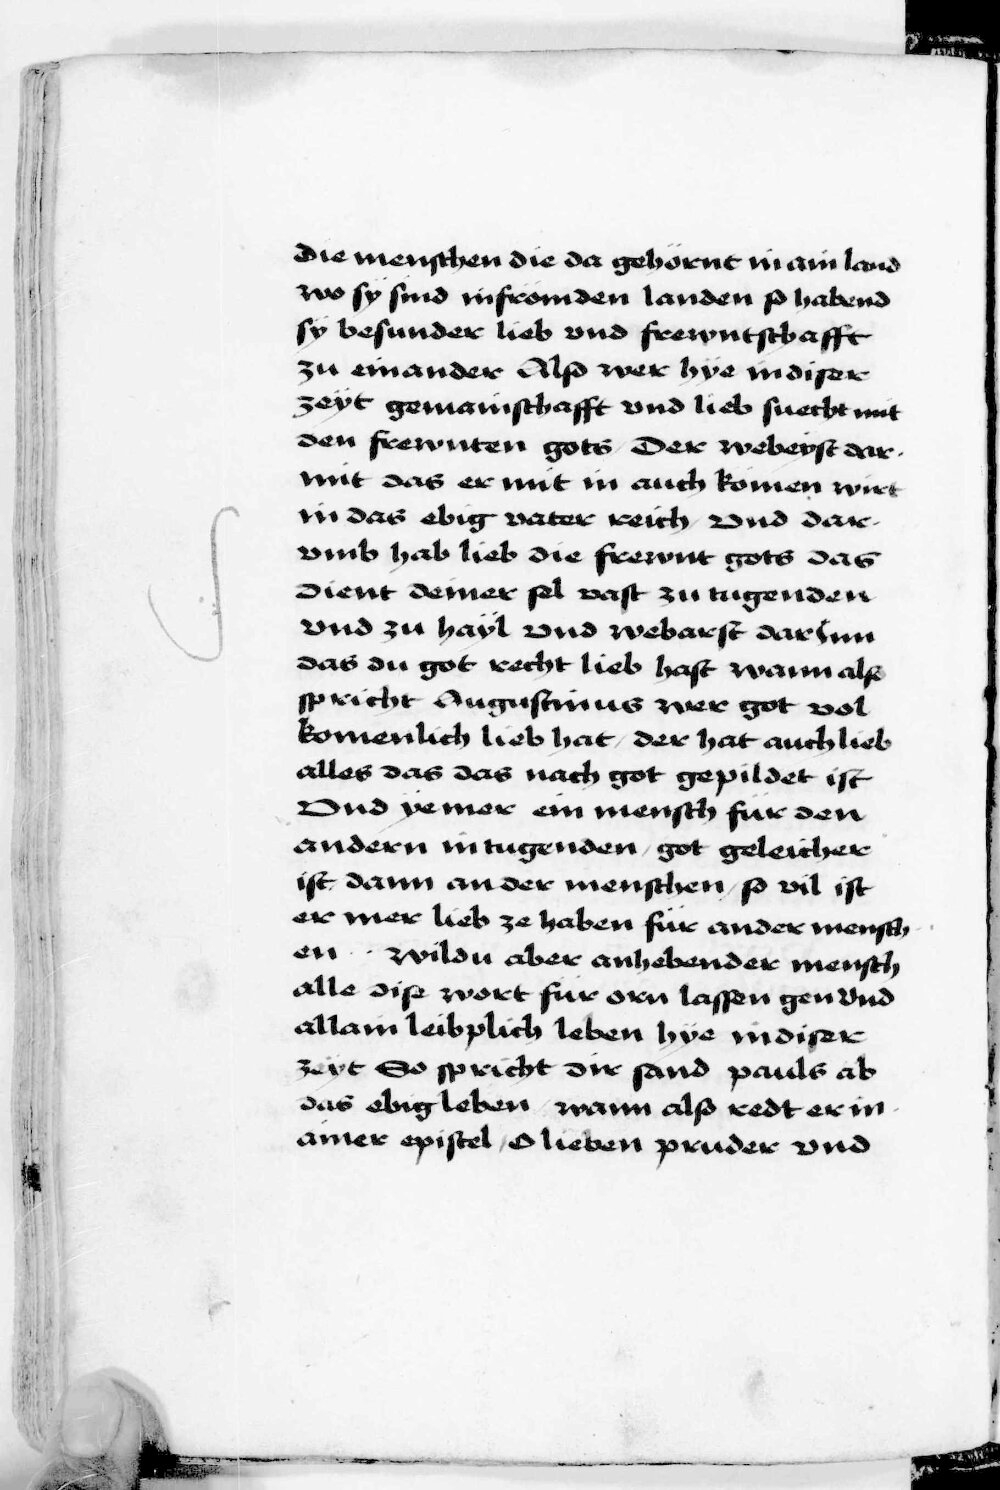 die menschen die da gehörnt in ain land
wo sÿ sind in frömden landen so habend
sÿ besunder lieb vnd frewntschafft
zu einander Also wer hÿe in diser
zeÿt gemainschafft vnd lieb suecht mit
den frewnten gots / Der webeÿst dar-
mit das er mit in auch komen wirt
in das ebig vater reich / Vnd dar-
vmb hab lieb die frewnt gots das
dient deiner sel vast zu tugenden
vnd zu haÿl Vnd webarst darinn
das du got recht lieb hast wann also
spricht Augustinus wer got vol
komenlich lieb hat / der hat auch lieb
alles das das nach got gepildet ist
Vnd ÿemer ein mensch für den
andern in tugenden / got geleicher
ist dann ander menschen / so vil ist
er mer lieb ze haben für ander mensch
en wildu aber anhebender mensch
alle dise wort für orn lassen gen Vnd
allain leibplich leben hÿe in diser
zeÿt So spricht dir sand pauls ab
das ebig leben / wann also redt er in
ainer epistel / O lieben pruder vnd